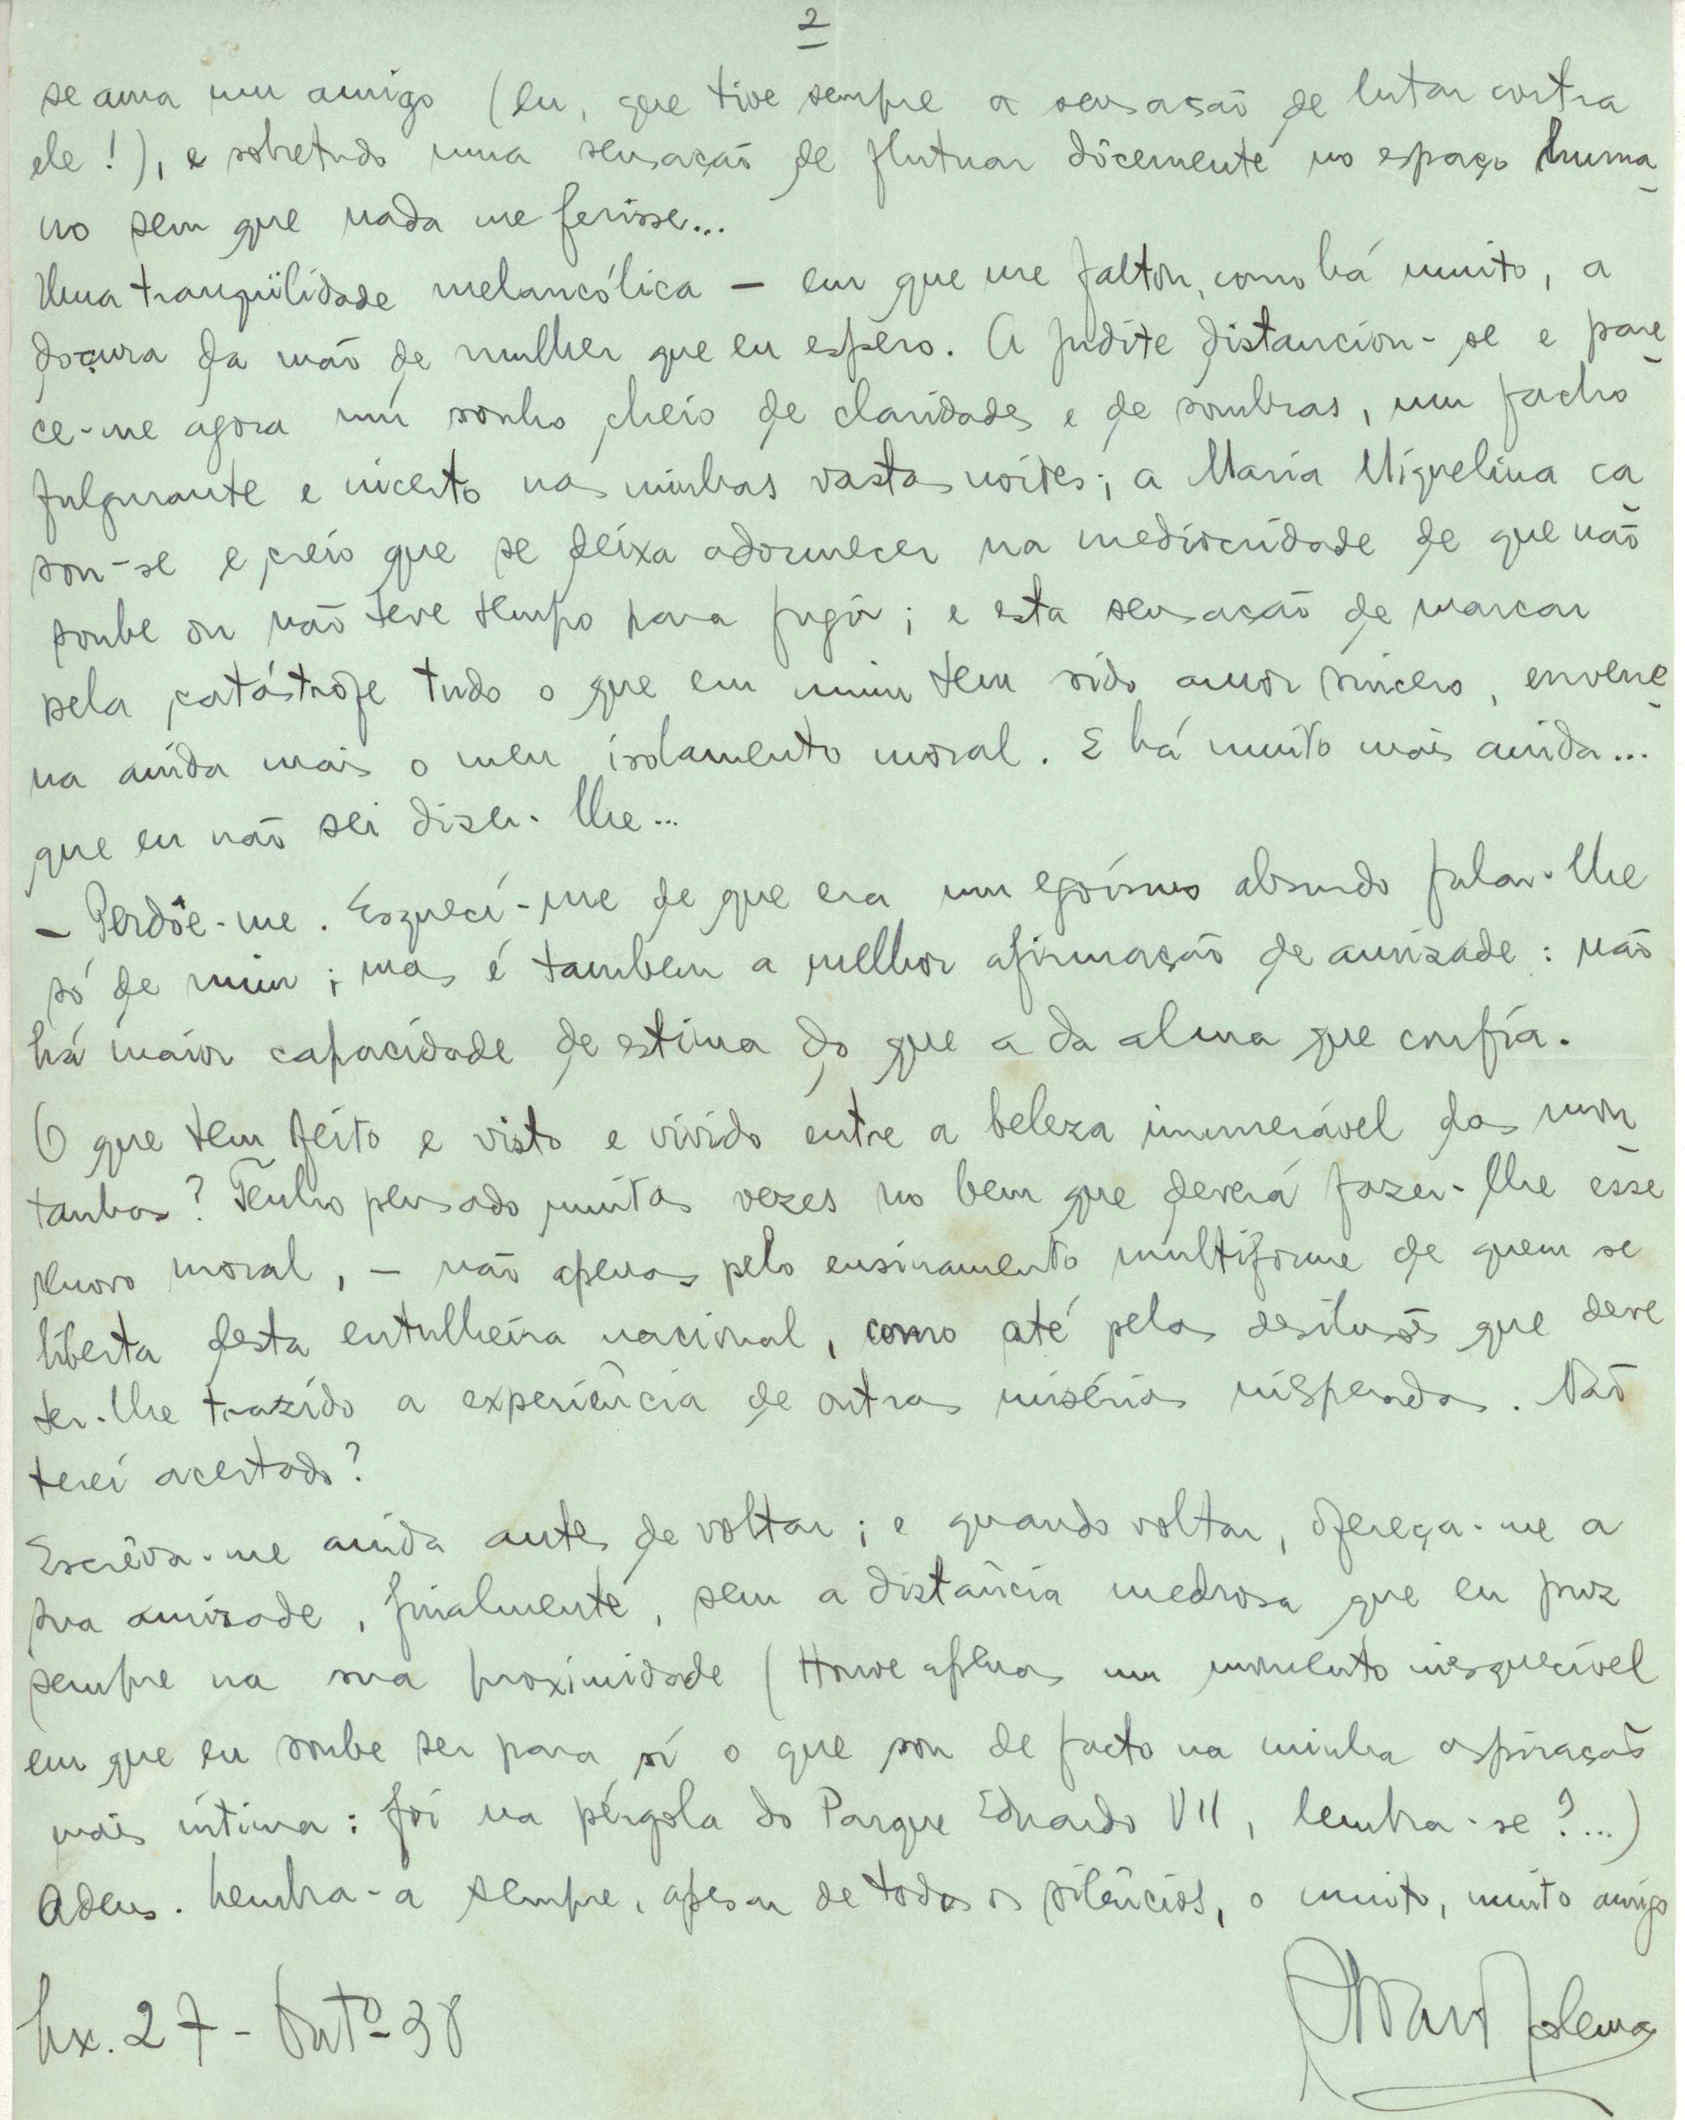 2
se ama um amigo (eu, que tive sempre a sensação de lutar contra
ele!), e sobretudo uma sensação de flutuar dôcemente no espaço huma-
no sem que nada me ferisse...
Uma tranqüilidade melancólica – em que me faltou, como há muito, a
doçura da mão de mulher que eu espero. A Judite distanciou-se e pare-
ce-me agora um sonho cheio de claridades e de sombras, um facho
fulgurante e incerto nas minhas vastas noites; a Maria Miguelina ca-
sou-se e creio que se deixa adormecer na mediocridade de que não
soube ou não teve tempo para fugir; e esta sensação de marcar
pela catástrofe tudo o que em mim tem sido amor sincero, envene-
na ainda mais o meu isolamento moral. E há muito mais ainda...
que eu não sei dizer-lhe...
– Perdôe-me. Esquecí-me de que era um egoísmo absurdo falar-lhe
só de mim; mas é tambem a melhor afirmação de amizade: não
há maior capacidade de estima do que a da alma que confía.
O que tem feito e visto e vivido entre a beleza inumerável das mon-
tanhas? Tenho pensado muitas vezes no bem que deverá fazer-lhe êsse
moral, – não apenas pelo ensinamento multiforme de quem se
liberta desta entulheira nacional, como até pelas desilusões que deve
ter-lhe trazido a experiência de outras misérias inesperadas. Não
terei acertado?
Escrêva-me ainda antes de voltar; e quando voltar, ofereça-me a
sua amizade, finalmente, sem a distância medrosa que eu puz
sempre na sua proximidade (Houve apenas um momento inesquecível
em que eu soube ser para si o que sou de facto na minha aspiração
mais íntima: foi na pérgola do Parque Eduardo VII, lembra-se?...)
Adeus. Lembra-a sempre, apesar de todos os silêncios, o muito, muito amigo
Lx. 27 - Outº - 38